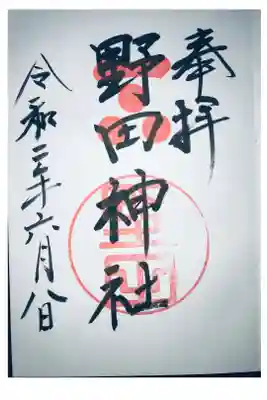 奉拝
野田神社
令和二年六月八日